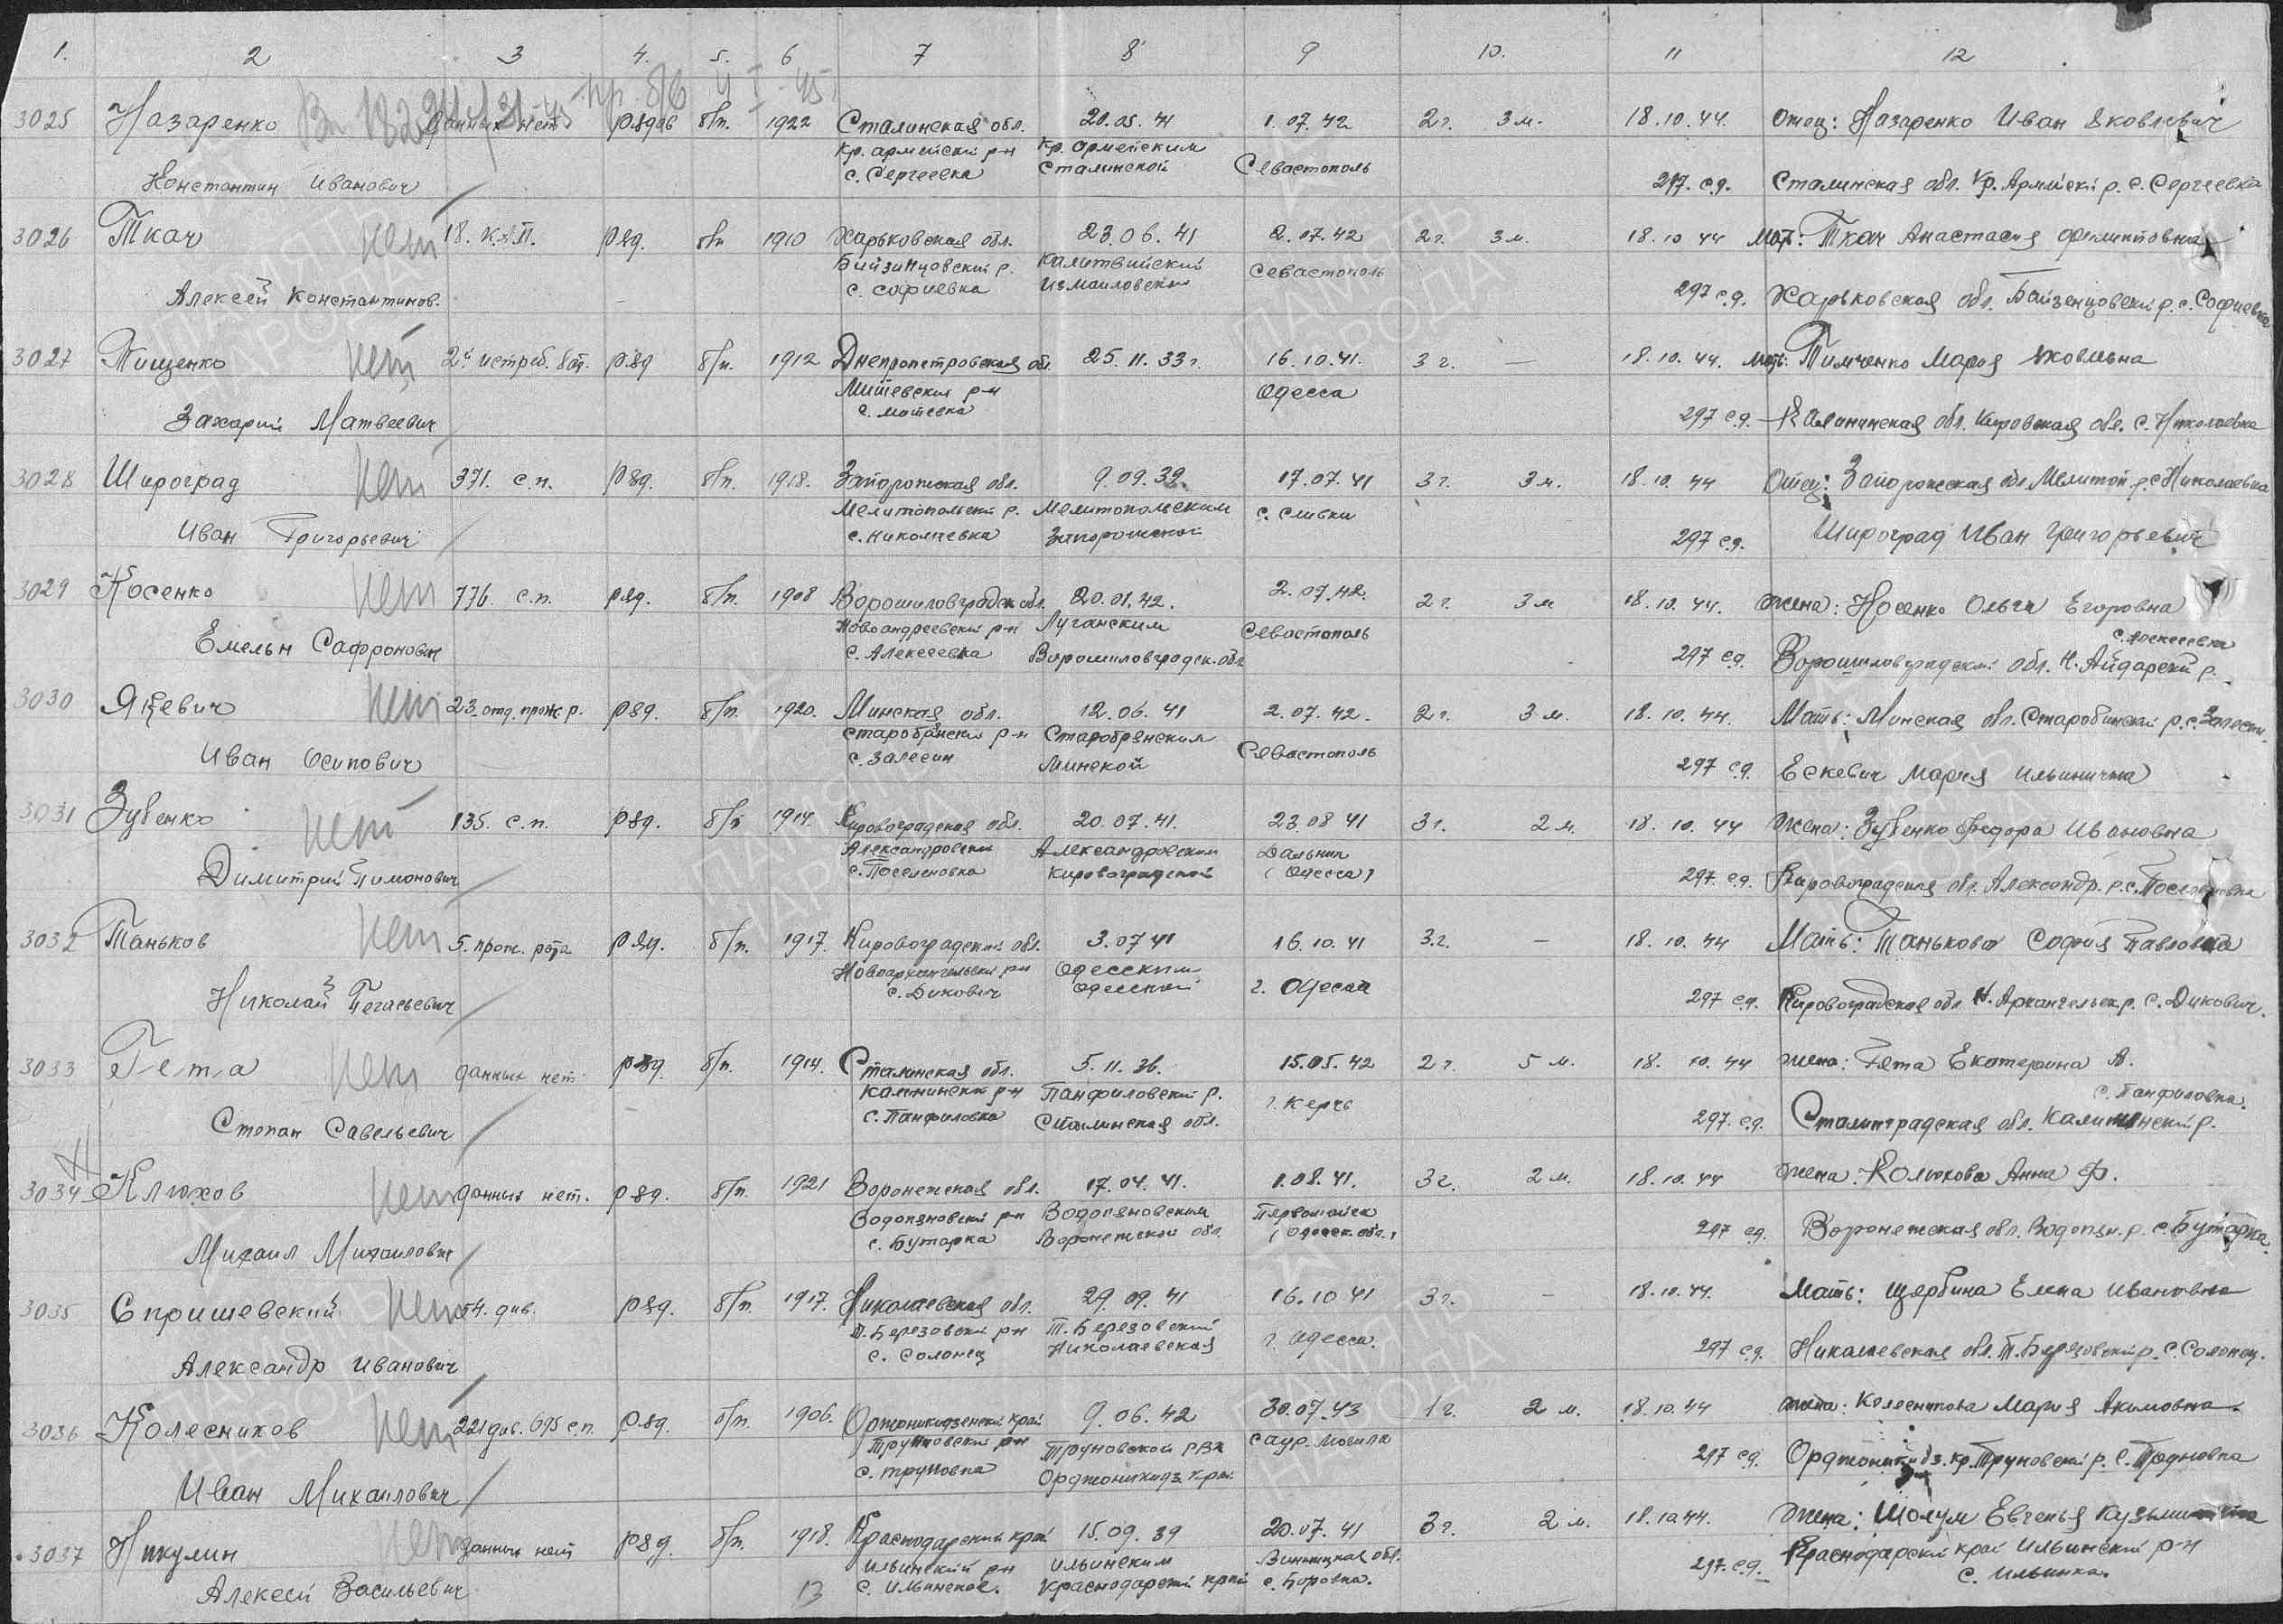 1. 2 3 4. 5. 6 7 8 9 10. 11 12
3025 Назаренко данных нет рядов б/п. 1922 Сталинская обл. 20.05.41 1.07.42 2г. 3м. 18.10.44. Отец: Назаренко Иван Яковлевич
Кр. армейский р-н Кр. Армейским
Константин Иванович с. Сергеевка Сталинской Севастополь 297. с.д. Сталинская обл. Кр. Армейский р. с. Сергеевка
3026 Ткач нет 18. К.А.П. ряд. б/п 1910 Харьковская обл. 23.06.41 2.07.42 2г. 3м. 18.10 44 Мать: Ткач Анастасия Филипповна
Измаиловской Севастополь
Алексей Константинов. с. Софиевка 297 с.д. Харьковская обл. р. с. Софиевка
3027 Тищенко нет 2й истреб. бат. ряд б/п. 1912 Днепропетровская обл. 25.11.33г. 16.10.41. 3г. — 18.10.44. Мать: Тимченко Мария Яковлевна
р-н Одесса
Захарий Матвеевич 297 с.д. Калининская обл. Кировская обл. с. Николаевка
3028 Широград нет 371. с.п. ряд. б/п. 1918. Запорожская обл. 9.09.39. 17.07.41 3г. 3м. 18.10.44 Отец: Запорожская обл. Мелитоп. р. с. Николаевка
Мелитопольский р. Мелитопольским с. Сливки
Иван Григорьевич с. Николаевка Запорожской 297 с.д. Широград Иван Григорьевич
3029 Косенко нет 776. с.п. ряд. б/п. 1908 Ворошиловградск. обл. 20.01.42. 2.07.42. 2г. 3м 18.10.44. Жена: Носенко Ольга Егоровна
Новоандреевский р-н Луганским Севастополь с. Алексеевка
Емельян Сафронович с. Алексеевка Ворошиловградск. обл. 297 с.д. Ворошиловградский обл. Н. Айдарский р.
3030 Яцевич нет 23 отд. прож р. ряд. б/п. 1920. Минская обл. 12.06.41 2.07.42. 2г. 3м. 18.10.44. Мать: Минская обл. Старобинский р. с. Залесин.
р-н Севастополь
Иван Осипович с. Залесин Минской 297 с.д. Ескевич Мария Ильинична
3031 Зубенко нет 135. с.п. ряд. б/п 1914. Кировоградская обл. 20.07.41. 23.08 41 3г. 2м. 18.10.44 Жена: Зубенко Федора Ивановна
Александровский Александровским Дальник
Димитрий Пимонович Кировоградской (Одесса) 297. с.д. Кировоградская обл. Александр. р. с.
3032 Таньков нет 5. прож. рота ряд. б/п. 1917. Кировоградский обл. 3.07 41 16.10.41 3г. — 18.10.44 Мать: Танькова София Павловна
Новоархангельский р-н Одесским
Николай с. Дикович Одесской г. Одесса 297 с.д. Кировоградская обл. Н. Архангельск р. с. Дикович.
3033 Гета нет данных нет ряд б/п. 1914. Сталинская обл. 5.11.36. 15.05.42 2г. 5м. 18.10.44 Жена: Гета Екатерина А.
Калининский р-н Панфиловский р. г. Керчь с. Панфиловка.
Степан Савельевич с. Панфиловка Сталинская обл. 297. с.д. Сталинградская обл. Калининский р.
3034 Клюхов нет данных нет. ряд. б/п. 1921 Воронежская обл. 17.04.41. 1.08.41. 3г. 2м. 18.10.44 Жена: Колюхова Анна Ф.
Водопяновский р-н Водопяновским Первомайск
Михаил Михаилович с. Бутырка Воронежской обл. (Одесск. обл.) 297 с.д. Воронежская обл. Водопян. р. с. Бутырка.
3035 Спришевский нет 54. див. ряд. б/п. 1917. Николаевская обл. 29.09.41 16.10 41 3г. — 18.10.44. Мать: Щербина Елена Ивановна
Т. Березовский р-н Т. Березовский г. Одесса.
Александр Иванович с. Солонец Николаевская 297 с.д. Николаевская обл. Т. Березовский р. с. Солонец.
3036 Колесников нет 221 див. 695 с.п. ряд. б/п. 1906. Орджоникидзенский край 9.06.42 30.07.43 1г. 2м. 18.10.44 Жена: Колесникова Мария Акимовна.
Труновский р-н Труновской РВК Саур. Могила
Иван Михаилович с. Труновка Орджоникидз. край 297 с.д. Орджоникидз. кр. Труновский р. с. Труновка
3037 Никулин нет данных нет ряд. б/п. 1918. Краснодарский край 15.09.39 20.07.41 3г. 2м. 18.10.44. Жена: Шолум Евгенья
Ильинский р-н Ильинским Винницкая обл. 297. с.д. Краснодарский край Ильинский р-н
Алексей Васильевич 13 с. Ильинское. Краснодарский край с. Боровка. с. Ильинка.
ПАМЯТЬ НАРОДА